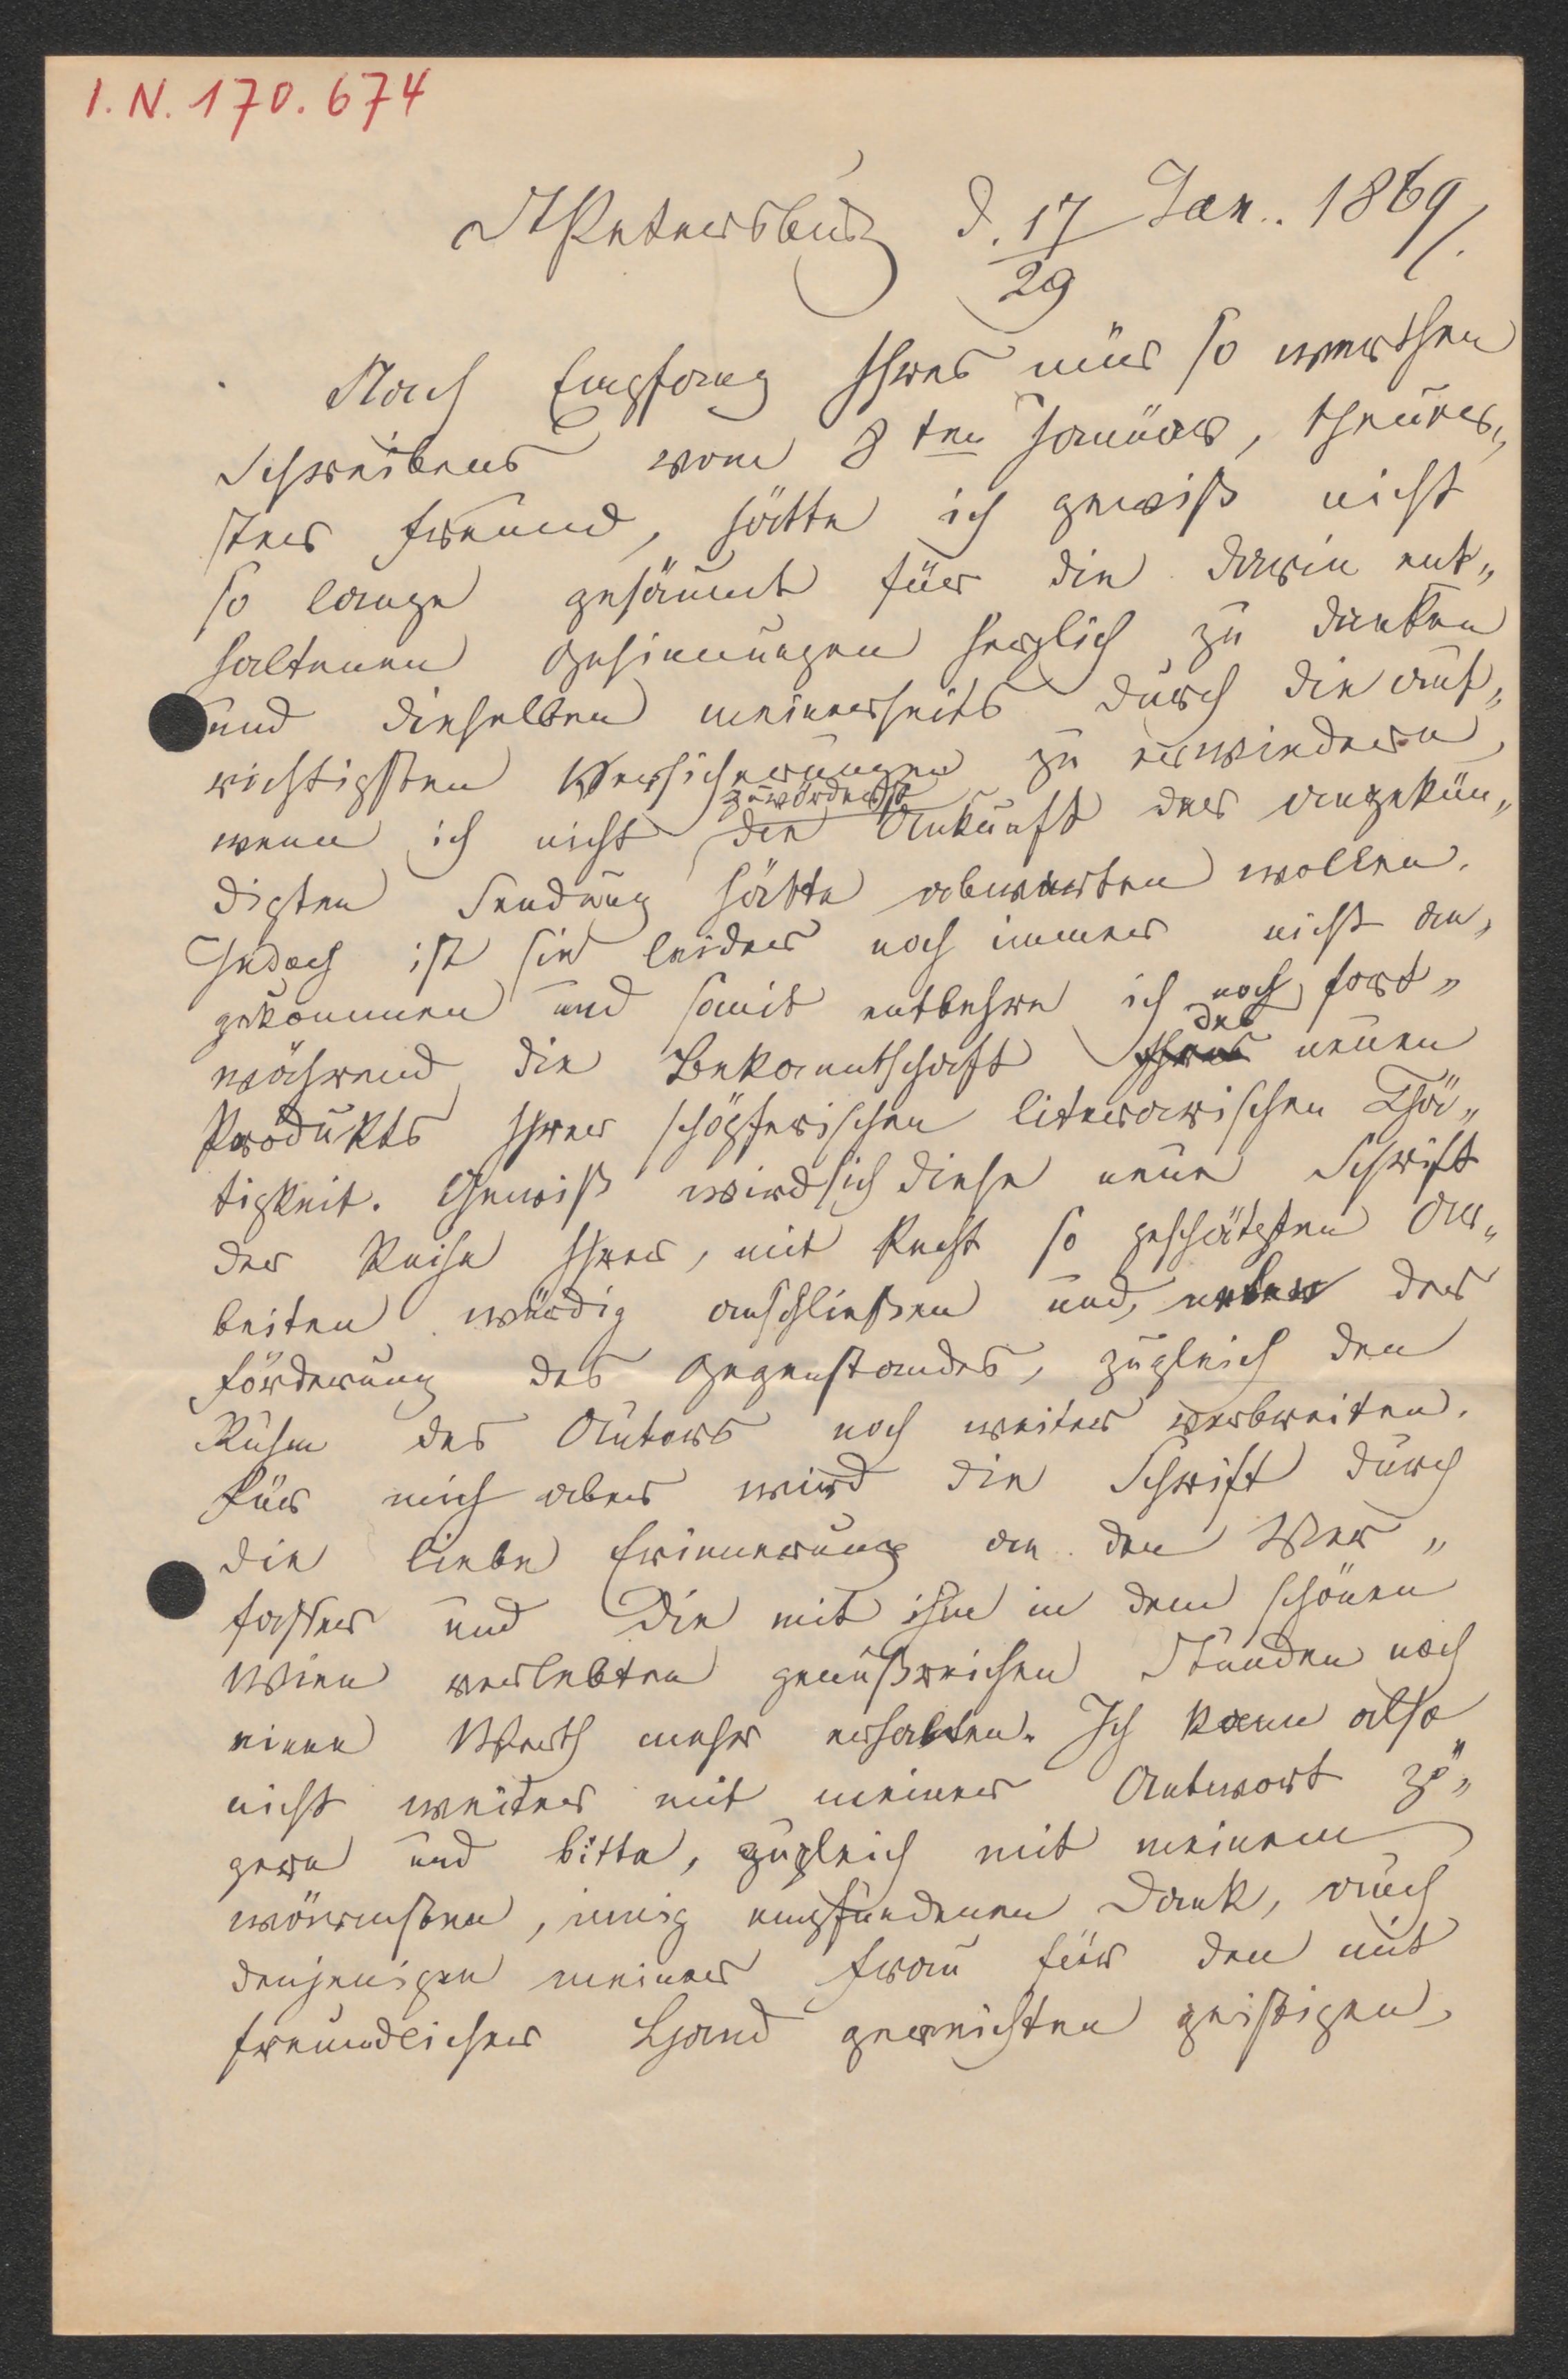 I.N. 170.674
St Petersburg d. 17/29 Jan. 1869/.
Nach Empfang Ihres mir so werthen
Schreibens vom 8ten Januar, theuer„
ster Freund, hätte ich gewiß nicht
so lange gesäumt für die darin ent„
haltenen Gesinnungen herzlich zu danken
und dieselben meinerseits durch die auf„
richtigsten Versicherungen zu erwiedern,
wenn ich nicht zuvörderst die Ankunft der angekün„
digten Sendung hätte abwarten wollen.
Jedoch ist sie leider noch immer nicht an„
gekommen und somit entbehre ich noch fort„
während die Bekanntschaft des neuen
Produkts Ihrer schöpferischen literarischen Thä„
tigkeit. Gewiß wird sich diese neue Schrift
der Reihe Ihrer, mit Recht so geschätzten Ar„
beiten würdig anschließen und, neben der
Förderung des Gegenstandes, zugleich den
Ruhm des Autors noch weiter verbreiten.
Für mich aber wird die Schrift durch
die liebe Erinnerung an den Ver„
fasser und die mit ihm in dem schönen
Wien verlebten genußreichen Stunden noch
einen Werth mehr erhalten. Ich kann also
nicht weiter mit meiner Antwort zö„
gern und bitte, zugleich mit meinem
wärmsten, innig empfundenen Dank, auch
denjenigen meiner Frau für den mit
freundlicher Hand gereichten geistigen